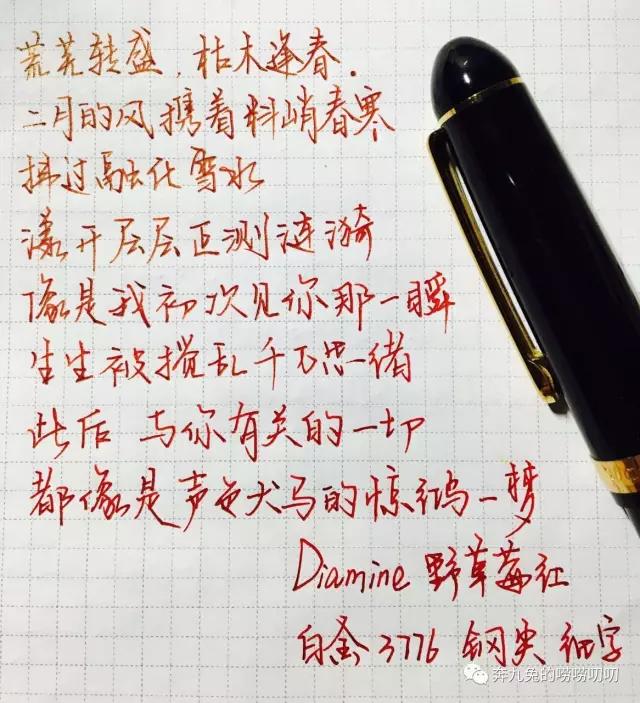 荒芜转盛，枯木逢春．
二月的风携着料峭春寒
拂过融化雪水
漾开层层叵测涟漪
像是我初次见你那一瞬
生生被搅乱千万思绪
此后 与你有关的一切
都像是声色犬马的惊鸿一梦
Diamine 野草莓红
白金3776 钢尖 细字
奔九兔的唠唠叨叨